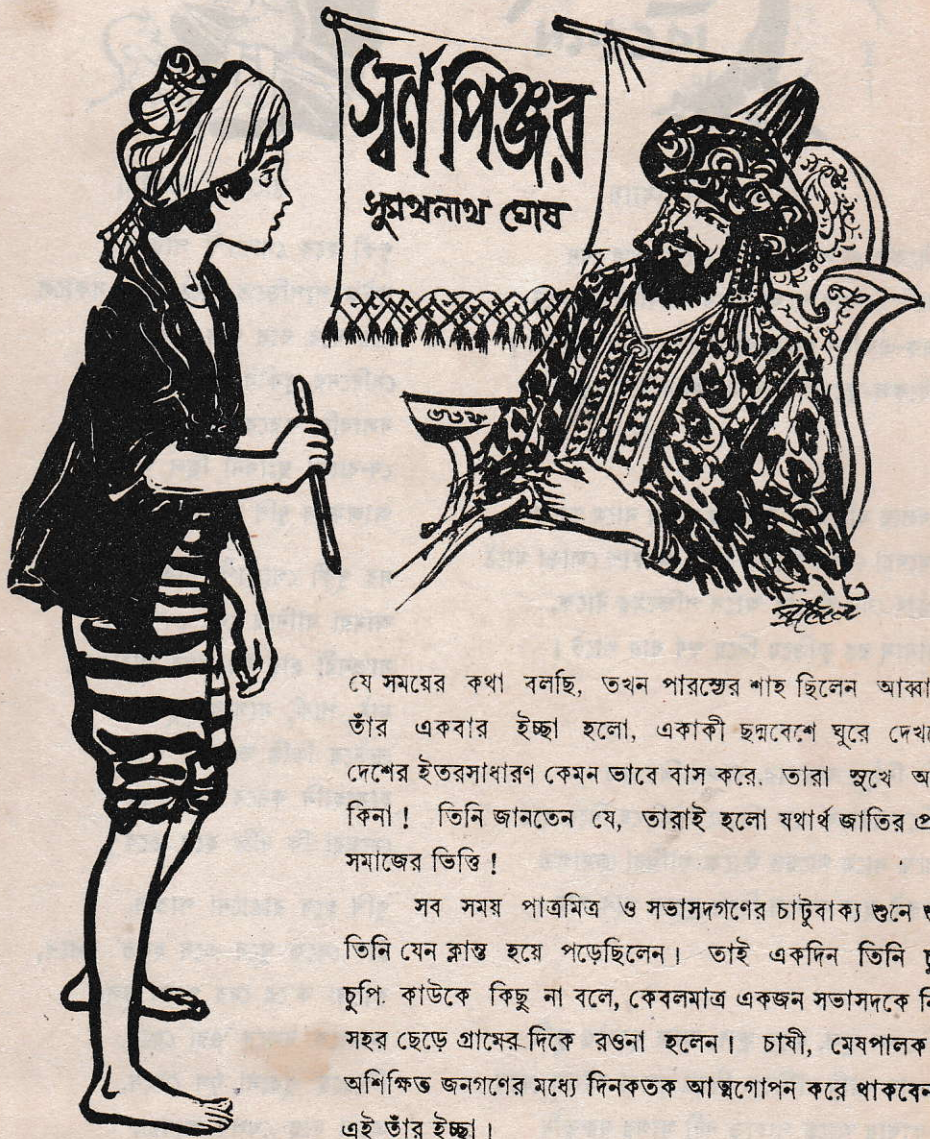 স্বর্ণ পিঞ্জর
সুমথনাথ ঘোষ
যে সময়ের কথা বলছি, তখন পারস্যের শাহ ছিলেন আব্বা
তাঁর একবার ইচ্ছা হলো, একাকী ছদ্মবেশে ঘুরে দেখ
দেশের ইতরসাধারণ কেমন ভাবে বাস করে, তারা সুখে অ
কিনা! তিনি জানতেন যে, তারাই হলো যথার্থ জাতির প্র
সমাজের ভিত্তি!
সব সময় পাত্রমিত্র ও সভাসদগণের চাটুবাক্য শুনে
তিনি যেন ক্লান্ত হয়ে পড়েছিলেন। তাই একদিন তিনি চু
চুপি কাউকে কিছু না বলে, কেবলমাত্র একজন সভাসদকে নি
সহর ছেড়ে গ্রামের দিকে রওনা হলেন। চাষী, মেষপালক
অশিক্ষিত জনগণের মধ্যে দিনকতক আত্মগোপন করে থাকবেন
এই তাঁর ইচ্ছা।